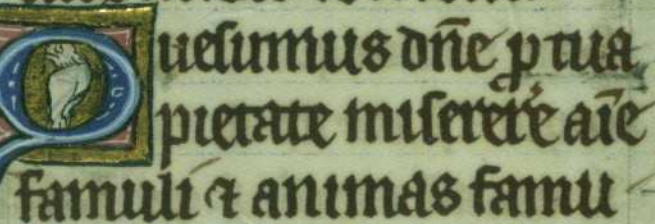 Quesumus dñe ꝑ tua
pietate miserere aīe
famuli ⁊ animas famu